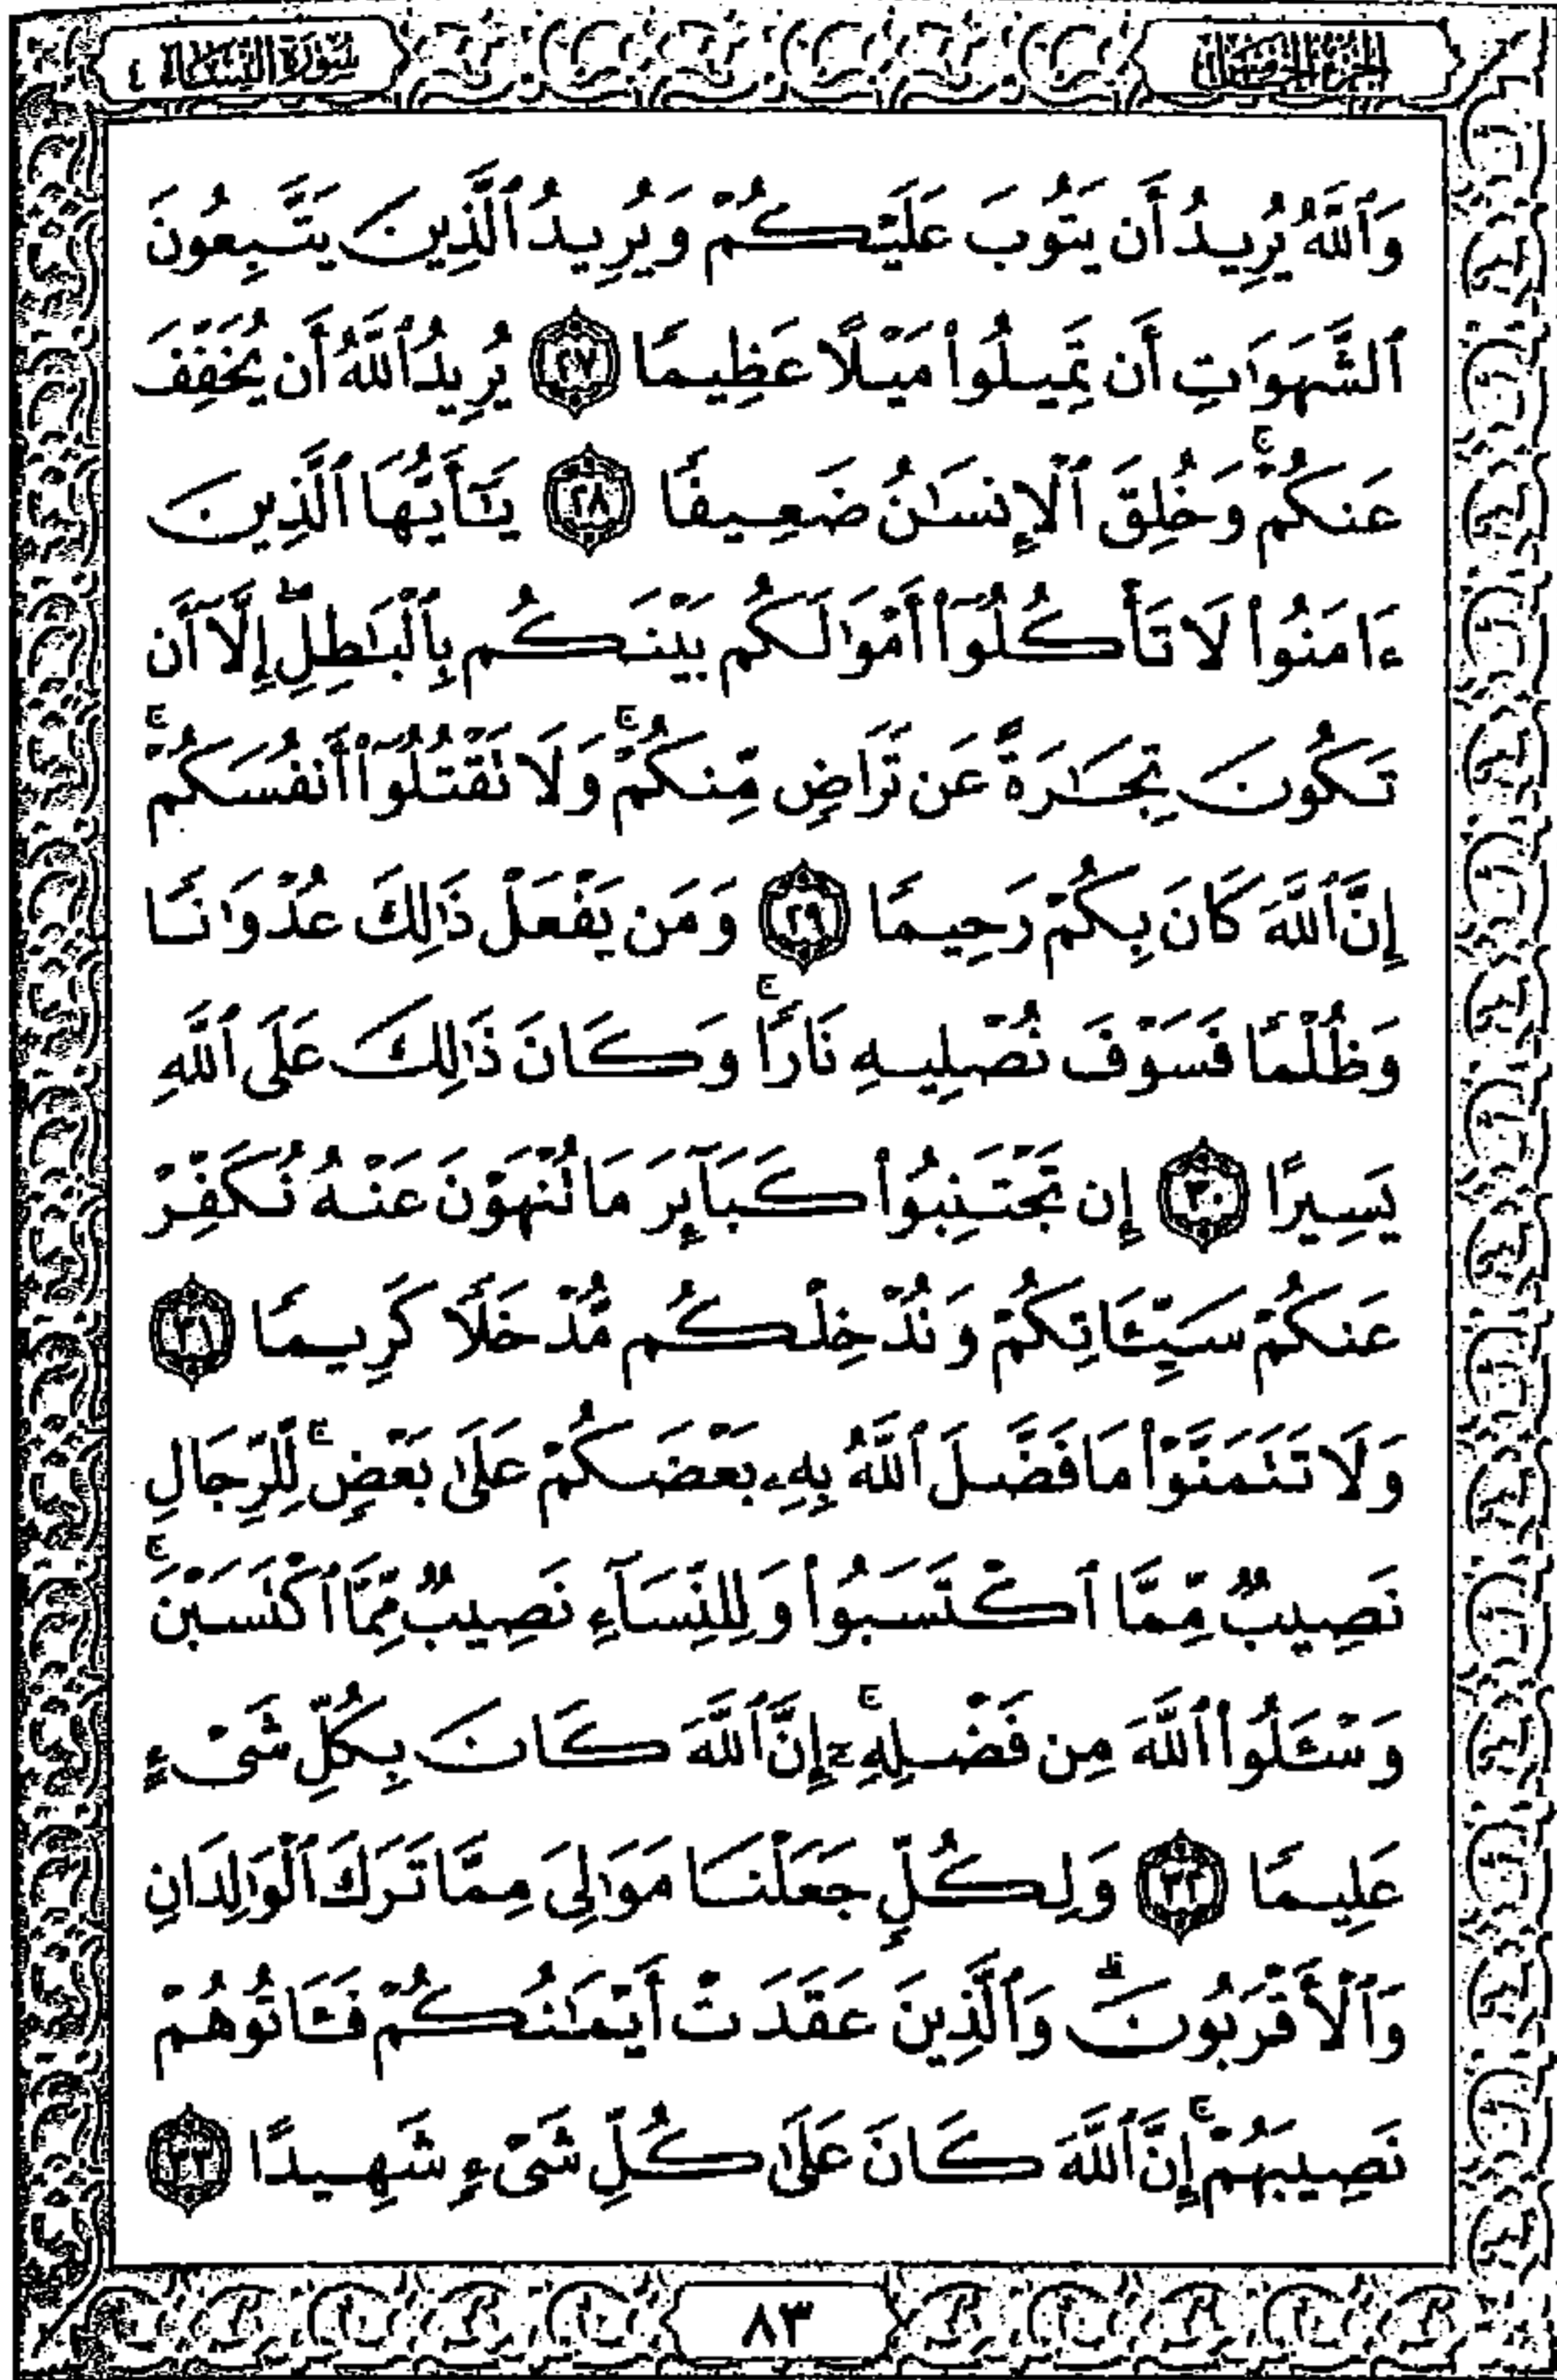 الجزء الخامس
سورة النساء ٤
وَٱللَّهُ يُرِيدُ أَن يَتُوبَ عَلَيْكُمْ وَيُرِيدُ ٱلَّذِينَ يَتَّبِعُونَ
ٱلشَّهَوَٰتِ أَن تَمِيلُوا۟ مَيْلًا عَظِيمًا ٢٧ يُرِيدُ ٱللَّهُ أَن يُخَفِّفَ
عَنكُمْ ۚ وَخُلِقَ ٱلْإِنسَٰنُ ضَعِيفًا ٢٨ يَٰٓأَيُّهَا ٱلَّذِينَ
ءَامَنُوا۟ لَا تَأْكُلُوٓا۟ أَمْوَٰلَكُم بَيْنَكُم بِٱلْبَٰطِلِ إِلَّآ أَن
تَكُونَ تِجَٰرَةً عَن تَرَاضٍ مِّنكُمْ ۚ وَلَا تَقْتُلُوٓا۟ أَنفُسَكُمْ ۚ
إِنَّ ٱللَّهَ كَانَ بِكُمْ رَحِيمًا ٢٩ وَمَن يَفْعَلْ ذَٰلِكَ عُدْوَٰنًا
وَظُلْمًا فَسَوْفَ نُصْلِيهِ نَارًا ۚ وَكَانَ ذَٰلِكَ عَلَى ٱللَّهِ
يَسِيرًا ٣٠ إِن تَجْتَنِبُوا۟ كَبَآئِرَ مَا تُنْهَوْنَ عَنْهُ نُكَفِّرْ
عَنكُمْ سَيِّـَٔاتِكُمْ وَنُدْخِلْكُم مُّدْخَلًا كَرِيمًا ٣١
وَلَا تَتَمَنَّوْا۟ مَا فَضَّلَ ٱللَّهُ بِهِۦ بَعْضَكُمْ عَلَىٰ بَعْضٍ ۚ لِّلرِّجَالِ
نَصِيبٌ مِّمَّا ٱكْتَسَبُوا۟ وَلِلنِّسَآءِ نَصِيبٌ مِّمَّا ٱكْتَسَبْنَ ۚ
وَسْـَٔلُوا۟ ٱللَّهَ مِن فَضْلِهِۦٓ ۚ إِنَّ ٱللَّهَ كَانَ بِكُلِّ شَىْءٍ
عَلِيمًا ٣٢ وَلِكُلٍّ جَعَلْنَا مَوَٰلِىَ مِمَّا تَرَكَ ٱلْوَٰلِدَانِ
وَٱلْأَقْرَبُونَ ۚ وَٱلَّذِينَ عَقَدَتْ أَيْمَٰنُكُمْ فَـَٔاتُوهُمْ
نَصِيبَهُمْ ۚ إِنَّ ٱللَّهَ كَانَ عَلَىٰ كُلِّ شَىْءٍ شَهِيدًا ٣٣
٨٣